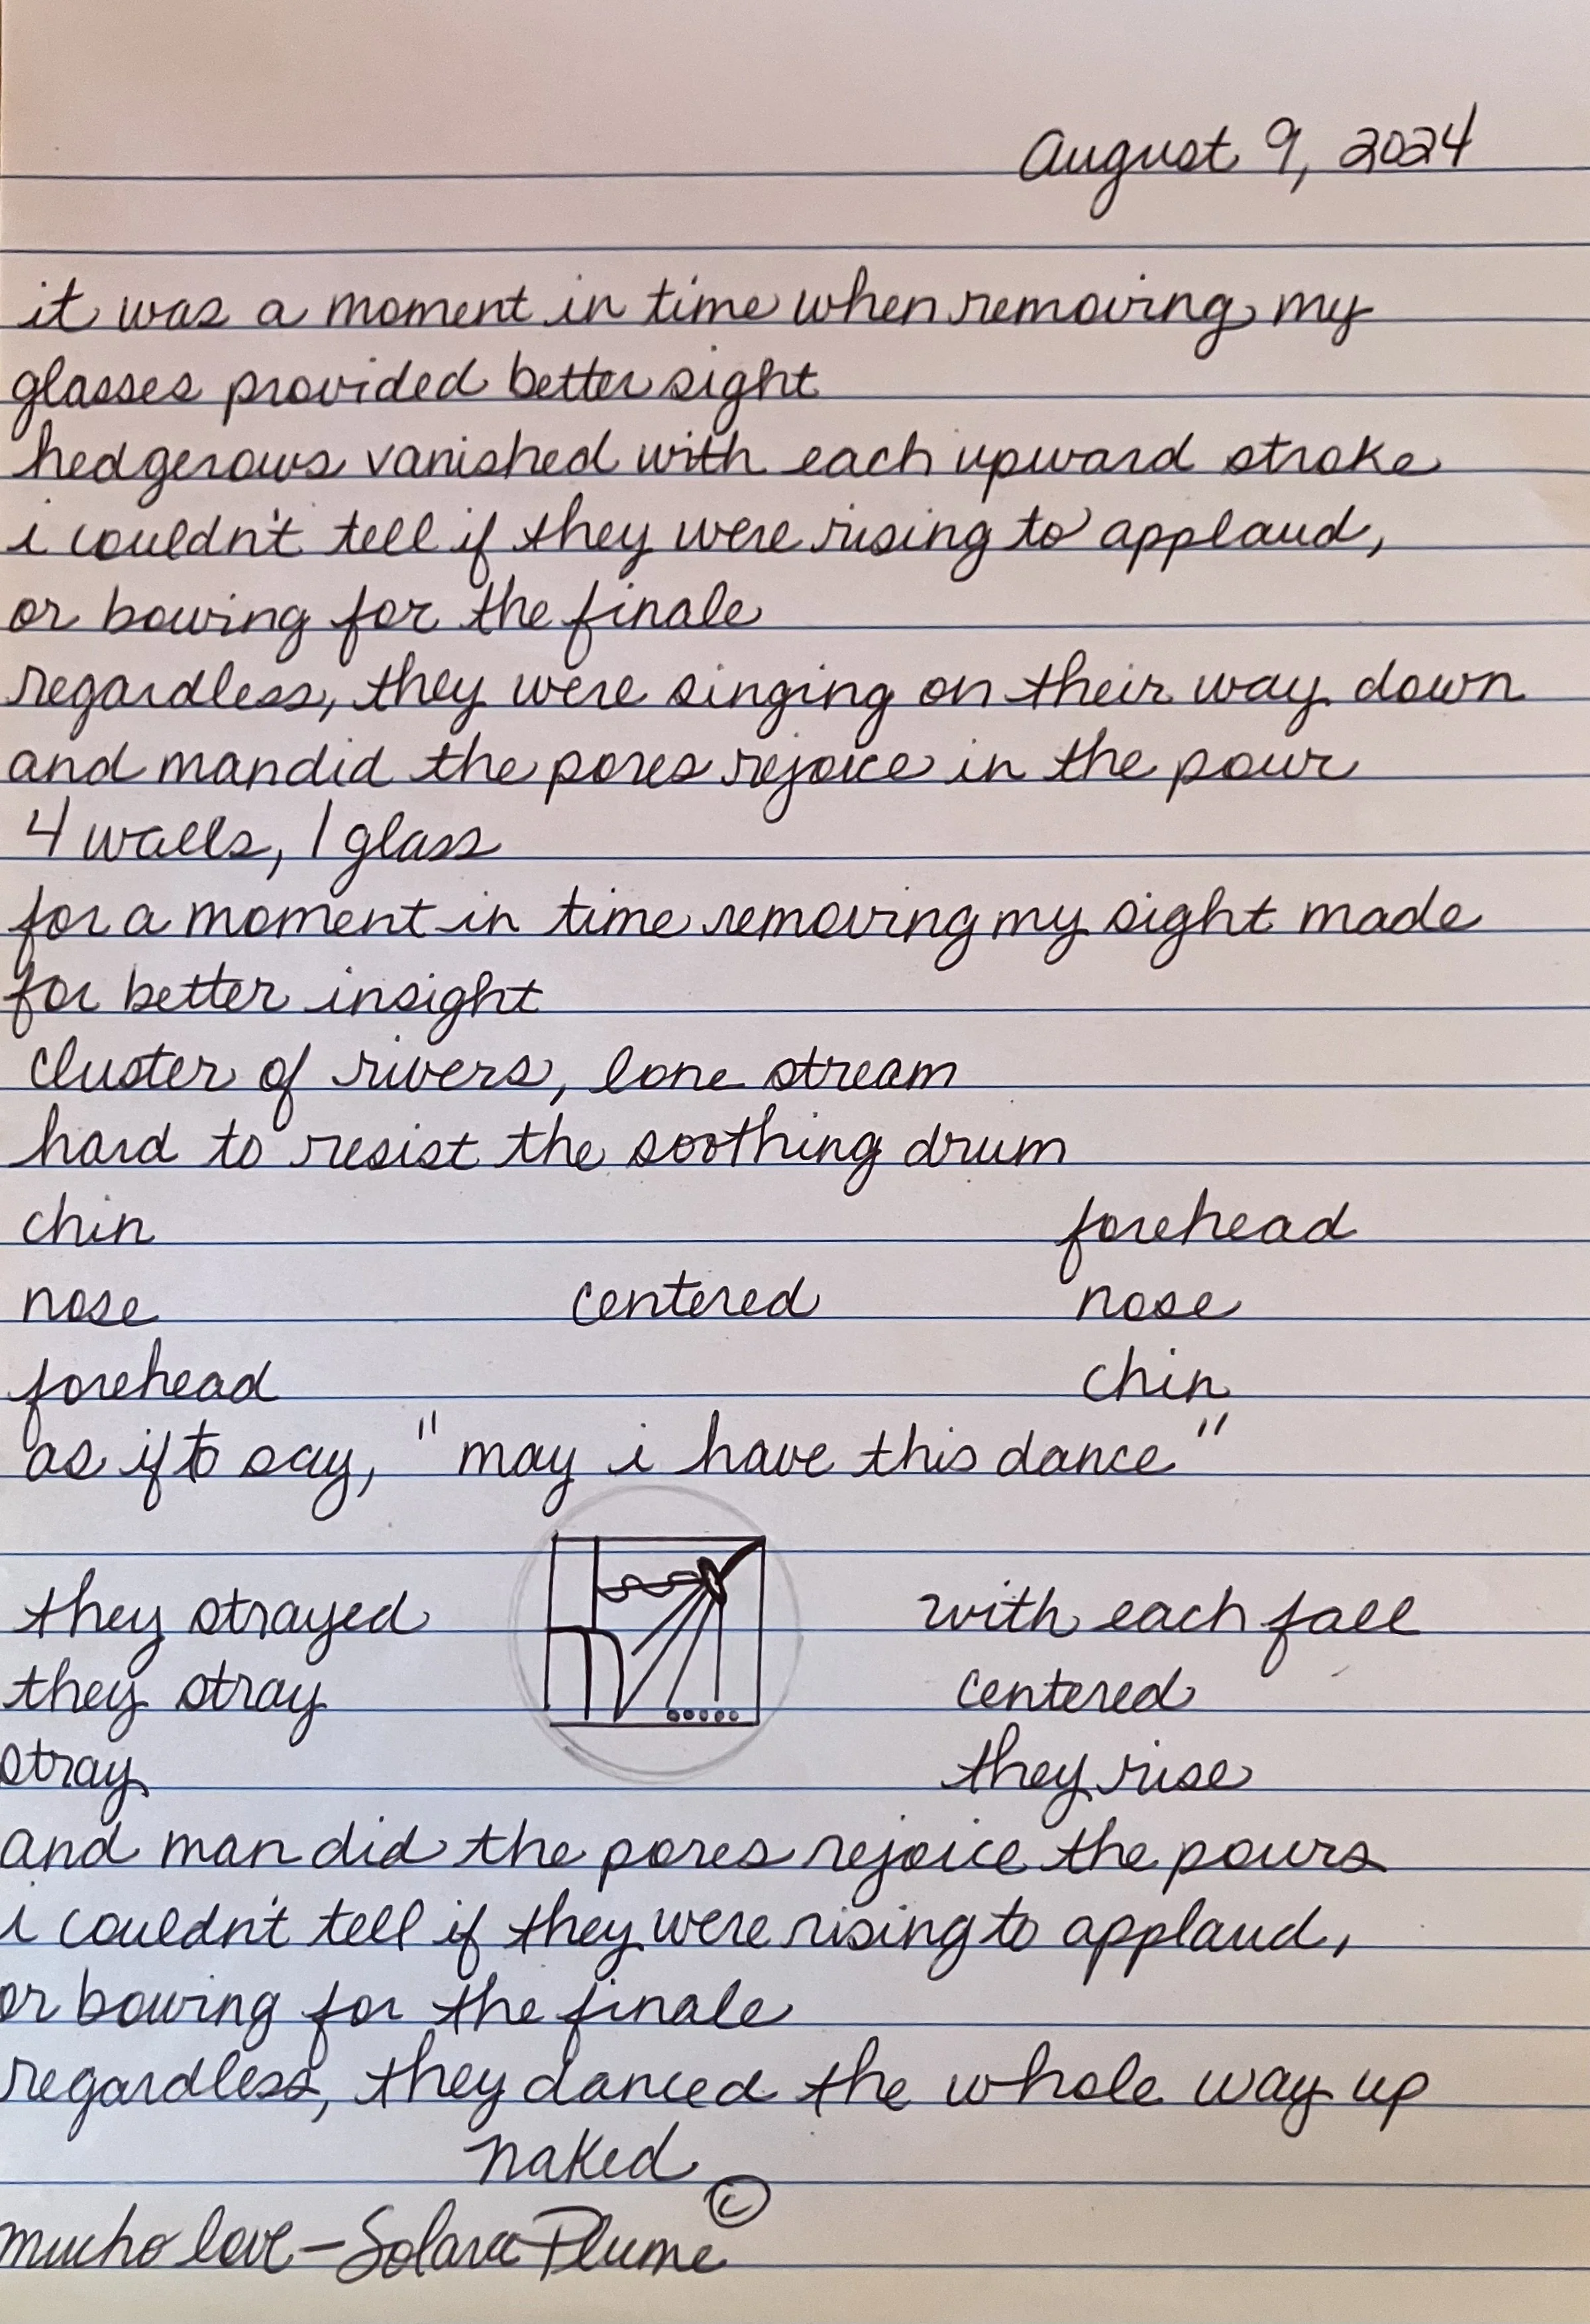 August 9, 2024
it was a moment in time when removing my
glasses provided better sight
hedgerows vanished with each upward stroke
i couldn't tell if they were rising to applaud,
or bowing for the finale
regardless, they were singing on their way down
and man did the pores rejoice in the pour
4 walls, 1 glass
for a moment in time removing my sight made
for better insight
cluster of rivers, lone stream
hard to resist the soothing drum
chin forehead
nose centered nose
forehead chin
as if to say, "may i have this dance"
they strayed with each fall
they stray centered
stray they rise
and man did the pores rejoice the pours
i couldn't tell if they were rising to applaud,
or bowing for the finale
regardless, they danced the whole way up
naked
mucho love - Solara Plume ©